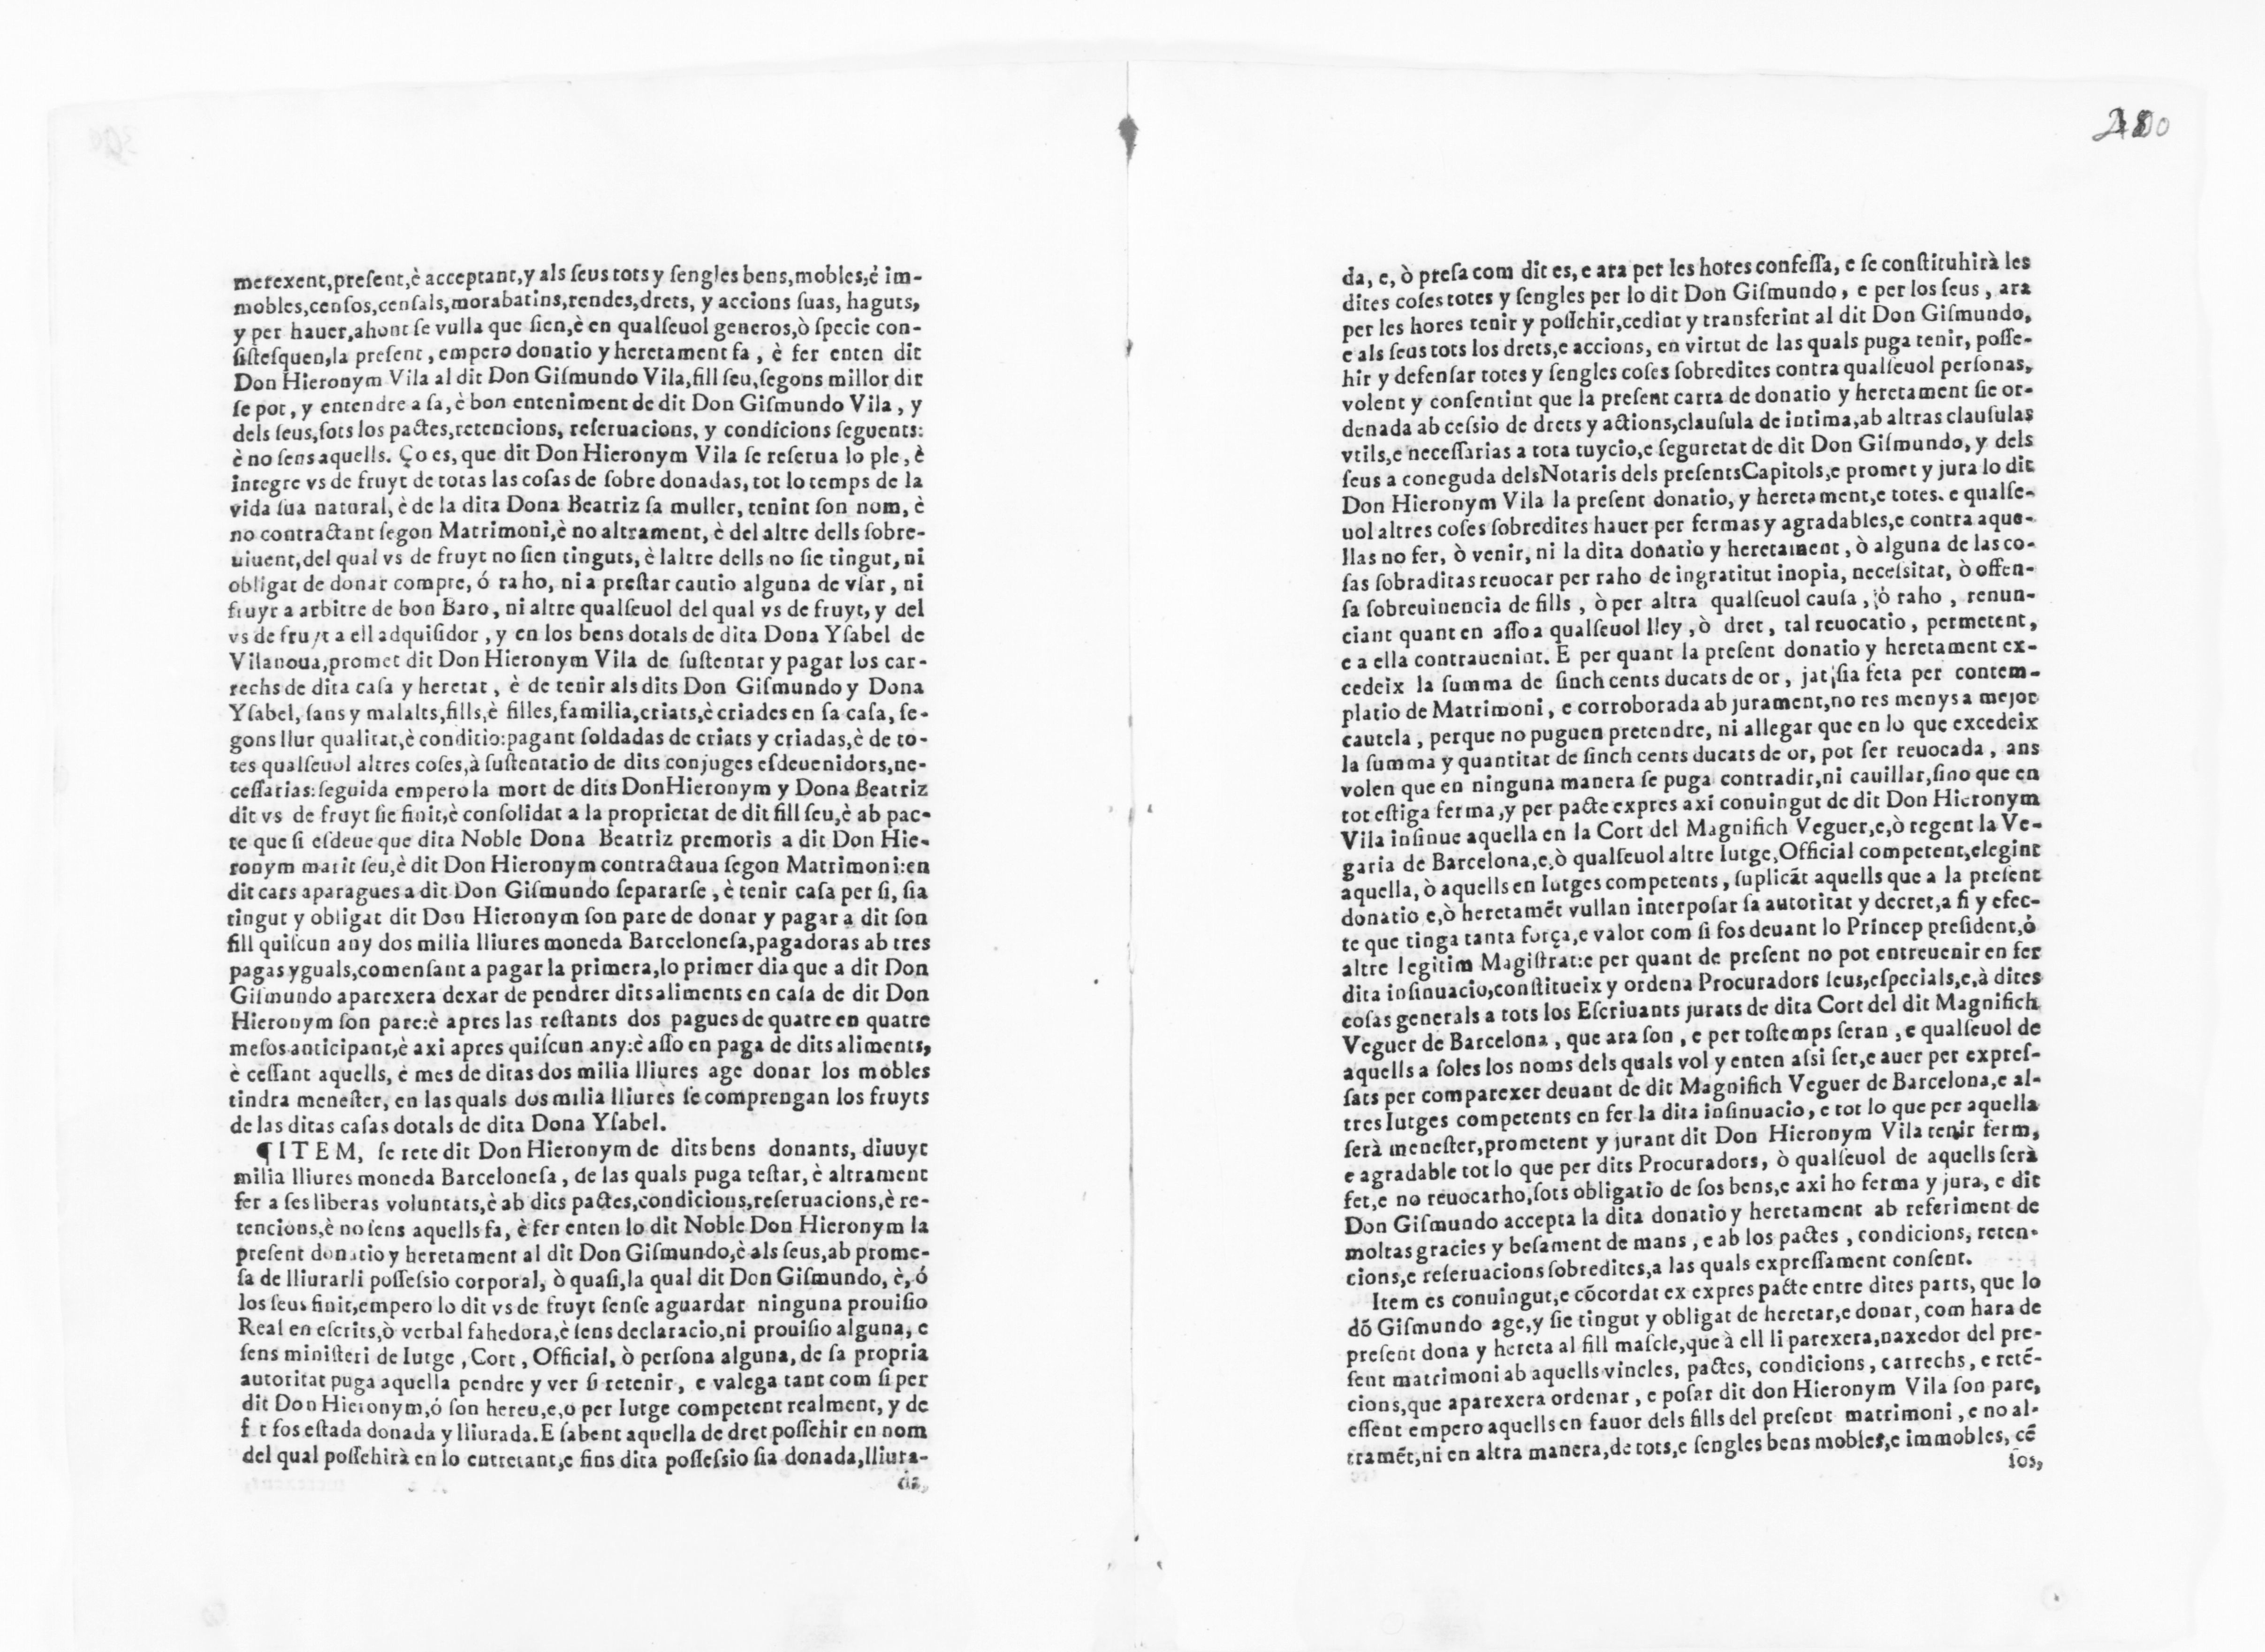 merexent,preſent,è acceptant,y als ſeus tots y ſengles bens,mobles,é im-
mobles,cenſos,cenſals,morabatins,rendes,drets, y accions ſuas, haguts,
y per hauer,ahont ſe vulla que ſien,è en qualſeuol generos,ò ſpecie con-
ſiſteſquen,la preſent , empero donatio y heretament fa , è fer enten dit
Don Hieronym Vila al dit Don Giſmundo Vila,fill ſeu,ſegons millor dir
ſe pot , y entendre a ſa,è bon enteniment de dit Don Giſmundo Vila , y
dels ſeus,ſots los pactes,retencions, reſeruacions, y condicions ſeguents:
è no ſens aquells. Ço es, que dit Don Hieronym Vila ſe reſerua lo ple , è
integre vs de fruyt de totas las coſas de ſobre donadas, tot lo temps de la
vida ſua natural, è de la dita Dona Beatriz ſa muller, tenint ſon nom, è
no contractant ſegon Matrimoni,è no altrament, è del altre dells ſobre-
uiuent,del qual vs de fruyt no ſien tinguts, è laltre dells no ſie tingut, ni
obligat de donar compte, ó raho, ni a preſtar cautio alguna de vſar , ni
fruyr a arbitre de bon Baro , ni altre qualſeuol del qual vs de fruyt, y del
vs de fruyt a ell adquiſidor , y en los bens dotals de dita Dona Yſabel de
Vilanoua,promet dit Don Hieronym Vila de ſuſtentar y pagar los car-
rechs de dita caſa y heretat , è de tenir als dits Don Giſmundo y Dona
Yſabel, ſans y malalts,fills,è filles,familia,criats,è criades en ſa caſa, ſe-
gons llur qualitat,è conditio:pagant ſoldadas de criats y criadas,è de to-
tes qualſeuol altres coſes,à ſuſtentatio de dits conjuges eſdeuenidors,ne-
ceſſarias:ſeguida empero la mort de dits Don Hieronym y Dona Beatriz
dit vs de fruyt ſie finit,è conſolidat a la proprietat de dit fill ſeu,è ab pac-
te que ſi eſdeue que dita Noble Dona Beatriz premoris a dit Don Hie-
ronym marit ſeu,è dit Don Hieronym contractaua ſegon Matrimoni:en
dit cars aparagues a dit Don Giſmundo ſepararſe , è tenir caſa per ſi, ſia
tingut y obligat dit Don Hieronym ſon pare de donar y pagar a dit ſon
fill quiſcun any dos milia lliures moneda Barceloneſa,pagadoras ab tres
pagas yguals,comenſant a pagar la primera,lo primer dia que a dit Don
Giſmundo aparexera dexar de pendrer dits aliments en caſa de dit Don
Hieronym ſon pare:è apres las reſtants dos pagues de quatre en quatre
meſos anticipant,è axi apres quiſcun any:è aſſo en paga de dits aliments,
è ceſſant aquells, è mes de ditas dos milia lliures age donar los mobles
tindra meneſter, en las quals dos milia lliures ſe comprengan los fruyts
de las ditas caſas dotals de dita Dona Yſabel.
¶ITEM, ſe rete dit Don Hieronym de dits bens donants, diuuyt
milia lliures moneda Barceloneſa , de las quals puga teſtar, è altrament
fer a ſes liberas voluntats,è ab dits pactes,condicions,reſeruacions,è re-
tencions,è no ſens aquells fa, è fer enten lo dit Noble Don Hieronym la
preſent donatio y heretament al dit Don Giſmundo,è als ſeus,ab prome-
ſa de lliurarli poſſeſsio corporal, ò quaſi,la qual dit Don Giſmundo, è, ó
los ſeus finit,empero lo dit vs de fruyt ſenſe aguardar ninguna prouiſio
Real en eſcrits,ò verbal fahedora,è ſens declaracio,ni prouiſio alguna, e
ſens miniſteri de Iutge , Cort , Official, ò perſona alguna, de ſa propria
autoritat puga aquella pendre y ver ſi retenir , e valega tant com ſi per
dit Don Hieronym,ó ſon hereu,e,o per Iutge competent realment, y de
f t fos eſtada donada y lliurada.E ſabent aquella de dret poſſehir en nom
del qual poſſehirà en lo entretant,e fins dita poſſeſsio ſia donada,lliura-
da,
da, e, ò preſa com dit es, e ara per les hores confeſſa, e ſe conſtituhirà les
dites coſes totes y ſengles per lo dit Don Giſmundo , e per los ſeus , ara
per les hores tenir y poſſehir,cedint y transferint al dit Don Giſmundo,
e als ſeus tots los drets,e accions, en virtut de las quals puga tenir, poſſe-
hir y defenſar totes y ſengles coſes ſobredites contra qualſeuol perſonas,
volent y conſentint que la preſent carta de donatio y heretament ſie or-
denada ab ceſsio de drets y actions,clauſula de intima,ab altras clauſulas
vtils,e neceſſarias a tota tuycio,e ſeguretat de dit Don Giſmundo, y dels
ſeus a coneguda dels Notaris dels preſents Capitols,e promet y jura lo dit
Don Hieronym Vila la preſent donatio, y heretament,e totes. e qualſe-
uol altres coſes ſobredites hauer per fermas y agradables,e contra aque-
llas no fer, ò venir, ni la dita donatio y heretament , ò alguna de las co-
ſas ſobraditas reuocar per raho de ingratitut inopia, neceſsitat, ò offen-
ſa ſobreuinencia de fills , ò per altra qualſeuol cauſa , ó raho , renun-
ciant quant en aſſo a qualſeuol lley , ò dret , tal reuocatio , permetent,
e a ella contrauenint. E per quant la preſent donatio y heretament ex-
cedeix la ſumma de ſinch cents ducats de or , jatſia feta per contem-
platio de Matrimoni , e corroborada ab jurament,no res menys a mejor
cautela , perque no puguen pretendre, ni allegar que en lo que excedeix
la ſumma y quantitat de ſinch cents ducats de or, pot ſer reuocada , ans
volen que en ninguna manera ſe puga contradir,ni cauillar,ſino que en
tot eſtiga ferma,y per pacte expres axi conuingut de dit Don Hieronym
Vila inſinue aquella en la Cort del Magnifich Veguer,e,ò regent la Ve-
garia de Barcelona,e,ò qualſeuol altre Iutge,Official competent,elegint
aquella, ò aquells en Iutges competents , ſuplicãt aquells que a la preſent
donatio e,ò heretamẽt vullan interpoſar ſa autoritat y decret,a fi y efec-
te que tinga tanta força,e valor com ſi fos deuant lo Princep preſident,ó
altre legitim Magiſtrat:e per quant de preſent no pot entreuenir en fer
dita inſinuacio,conſtitueix y ordena Procuradors ſeus,eſpecials,e,à dites
coſas generals a tots los Eſcriuants jurats de dita Cort del dit Magnifich
Veguer de Barcelona , que ara ſon , e per toſtemps ſeran , e qualſeuol de
aquells a ſoles los noms dels quals vol y enten aſsi ſer,e auer per expreſ-
ſats per comparexer deuant de dit Magnifich Veguer de Barcelona,e al-
tres Iutges competents en fer la dita inſinuacio, e tot lo que per aquella
ſerà meneſter,prometent y jurant dit Don Hieronym Vila tenir ferm,
e agradable tot lo que per dits Procuradors, ò qualſeuol de aquells ſerà
fet,e no reuocarho,ſots obligatio de ſos bens,e axi ho ferma y jura, e dit
Don Giſmundo accepta la dita donatio y heretament ab referiment de
moltas gracies y beſament de mans , e ab los pactes , condicions, reten-
cions,e reſeruacions ſobredites,a las quals expreſſament conſent.
Item es conuingut,e cõcordat ex expres pacte entre dites parts, que lo
dõ Giſmundo age,y ſie tingut y obligat de heretar,e donar, com hara de
preſent dona y hereta al fill maſcle,que à ell li parexera,naxedor del pre-
ſent matrimoni ab aquells vincles, pactes, condicions , carrechs , e retẽ-
cions,que aparexera ordenar , e poſar dit don Hieronym Vila ſon pare,
eſſent empero aquells en fauor dels fills del preſent matrimoni , e no al-
tramẽt,ni en altra manera,de tots,e ſengles bens mobles,e immobles, cẽ
ſos,